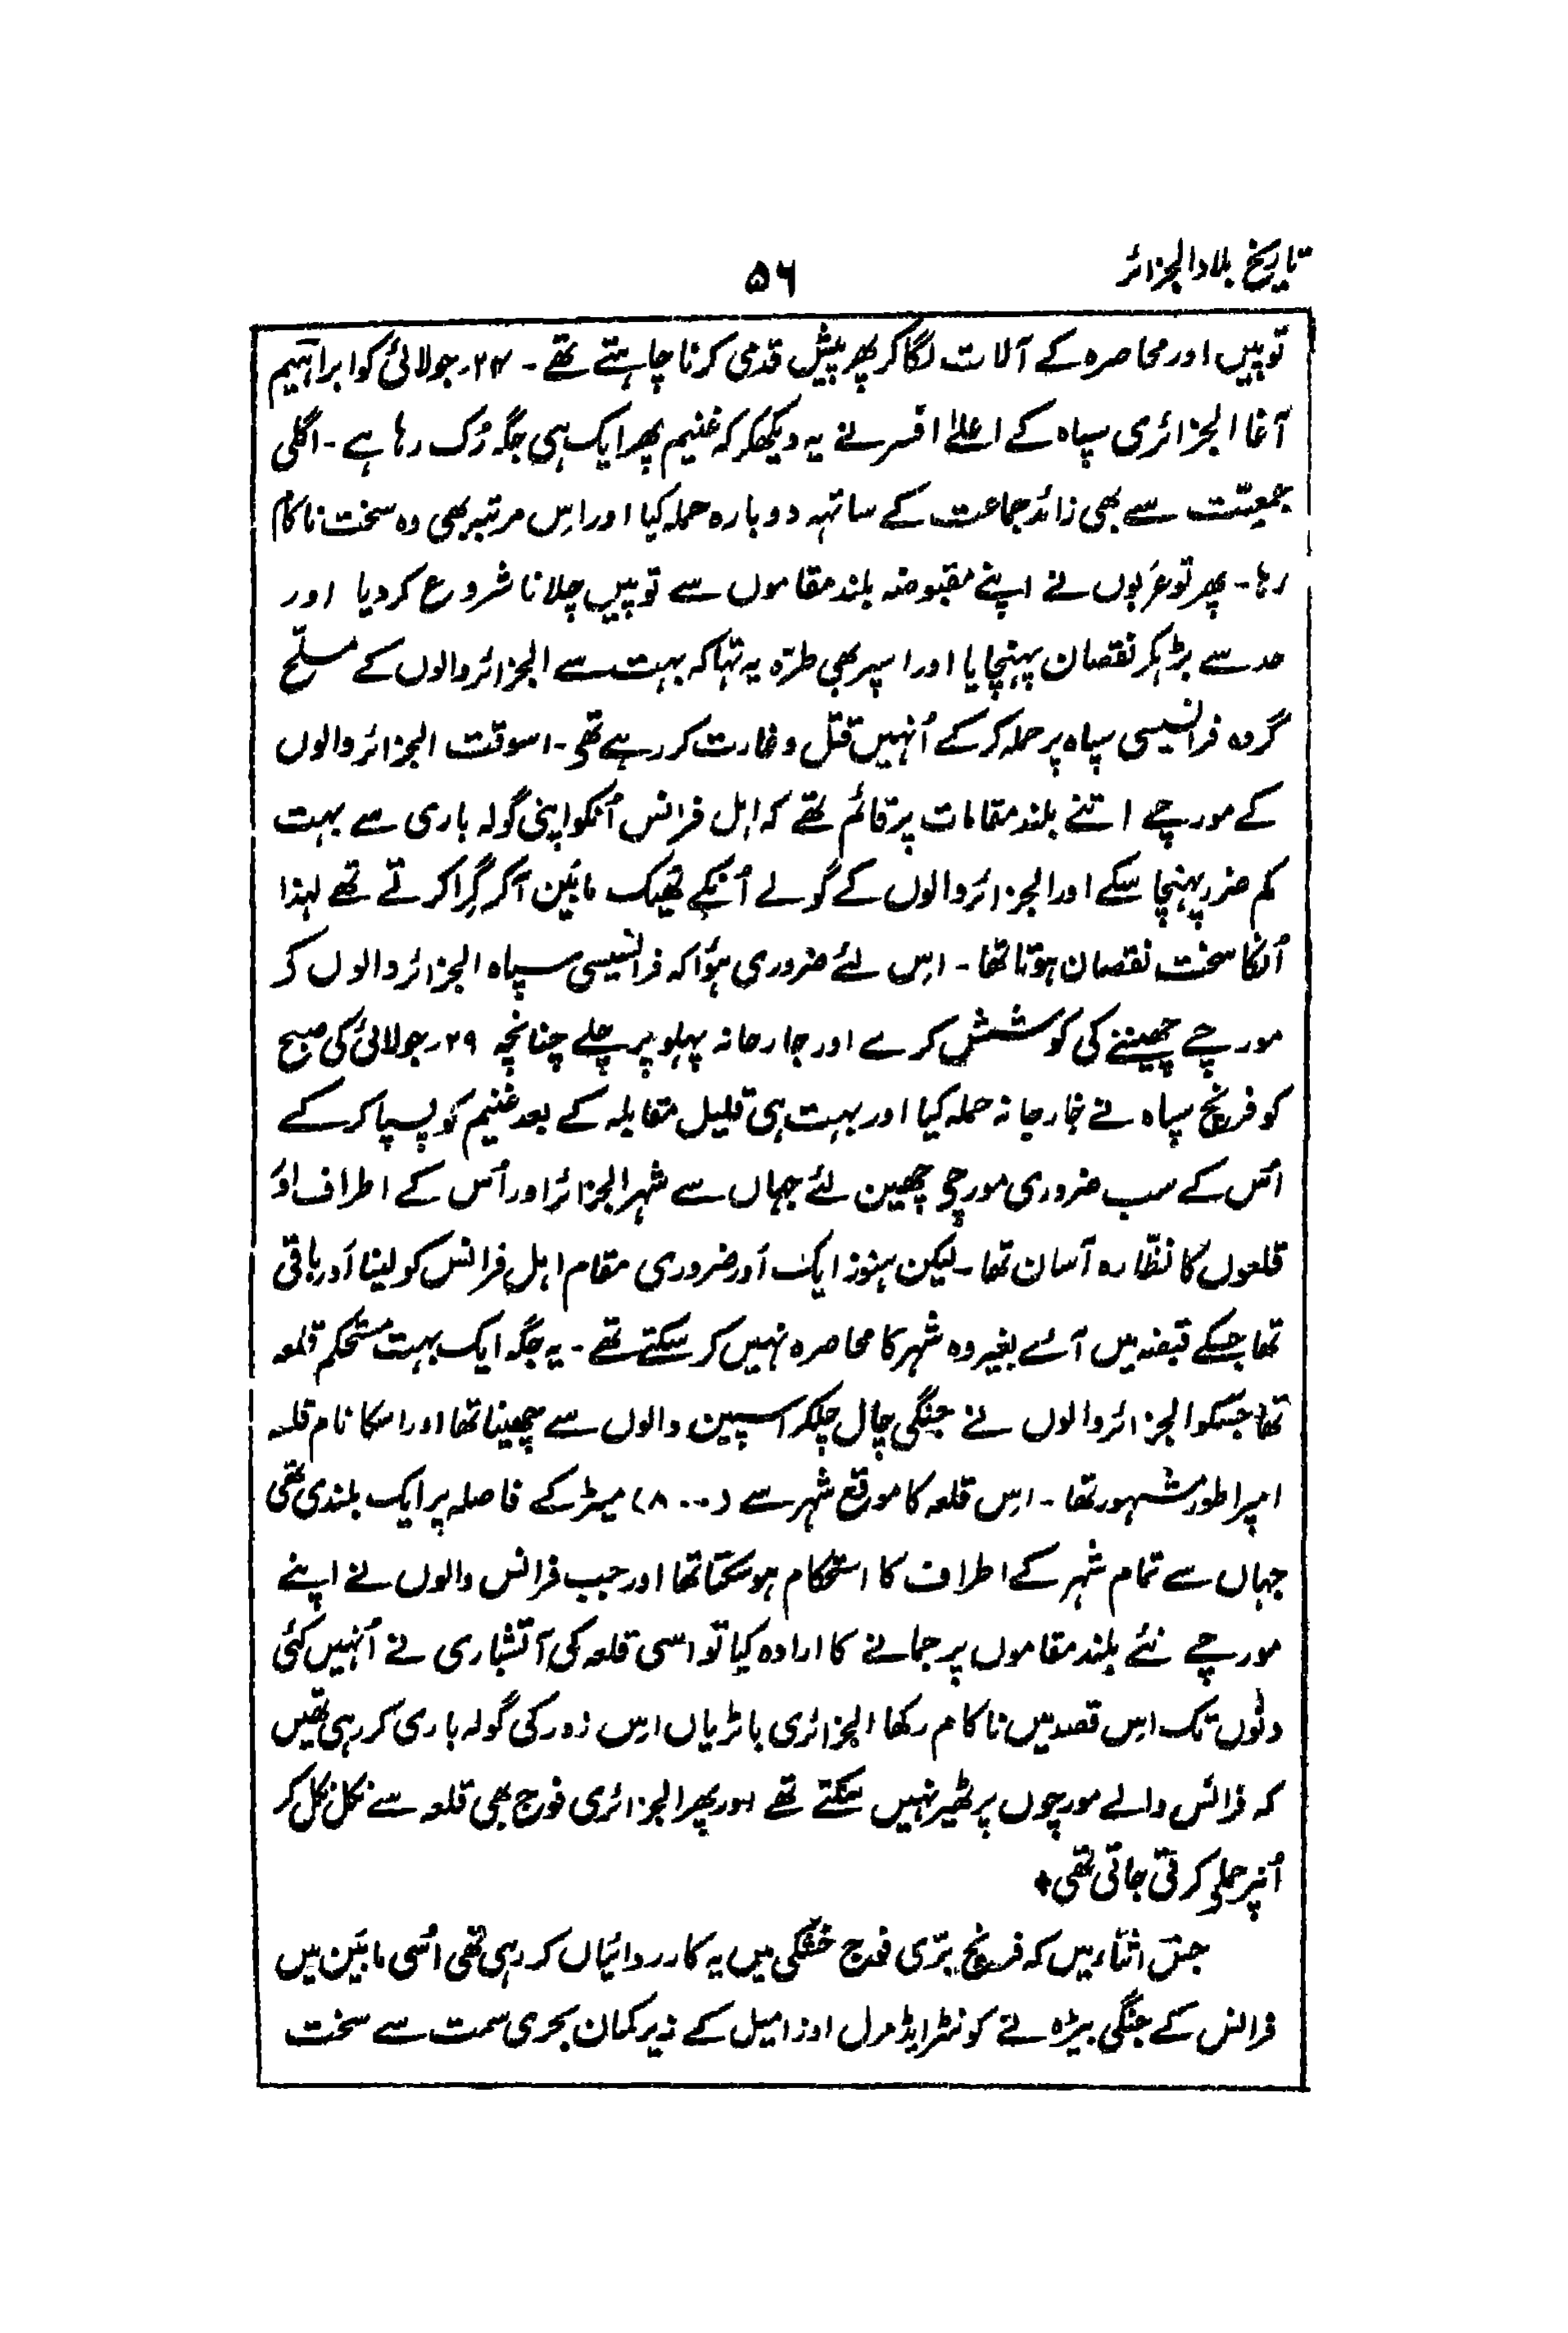 تاریخ بلاد الجزائر
۵۶
توپیں اور محاصرہ کے آلات لگا کر پھر پیش قدمی کرنا چاہتے تھے ۔ ۲۴؍ جولائی کو ابراہیم
آغا الجزائری سپاہ کے اعلےٰ افسر نے یہ دیکھکر کہ غنیم پھر ایک ہی جگہ رُک رہا ہے ۔ اگلی
جمعیّت سے بھی زائد جماعت کے ساتھہ دوبارہ حملہ کیا اور اِس مرتبہ بھی وہ سخت ناکام
رہا ۔ پھر تو عَربوں نے اپنے مقبوضہ بلند مقاموں سے توپیں چلانا شروع کردیا اور
حد سے بڑہکر نقصان پہنچایا اور اسپر بھی طرّہ یہ تہا کہ بہت سے الجزائر والوں کے مسلّح
گروہ فرانسیسی سپاہ پر حملہ کرکے اُنہیں قتل و غارت کر رہے تھے ۔ اسوقت الجزائر والوں
کے مورچے اتنے بلند مقامات پر قائم تھے کہ اہل فرانس اُنکو اپنی گولہ باری سے بہت
کم ضرر پہنچا سکے اور الجزائر والوں کے گولے اُنکے ٹھیک مابَین آکر گِرا کرتے تھے لہذا
اُنکا سخت نقصان ہوتا تھا ۔ اِس لئے ضروری ہؤا کہ فرانسیسی سپاہ الجزائر والوں کر
مورچے چھیننے کی کوشش کرے اور جارحانہ پہلو پر چلے چنانچہ ۲۹؍ جولائی کی صبح
کو فرنچ سپاہ نے خارجانہ حملہ کیا اور بہت ہی قلیل مقابلہ کے بعد غنیم کو پسپا کرکے
اُس کے سب ضروری مورچی چھین لئے جہاں سے شہر الجزائر اور اُس کے اطراف اَوْ
قلعوں کا نظّارہ آسان تھا ۔ لیکن ہنوز ایک اَور ضروری مقام اہلِ فرانس کو لینا اَور باقی
تھا جسکے قبضہ میں آئے بغیر وہ شہر کا محاصرہ نہیں کر سکتے تھے ۔ یہ جگہ ایک بہت مستحکم قلعہ
تھا جسکو الجزائر والوں نے جنگی چال چلکر اسپین والوں سے چھینا تھا اور اسکا نام قلعہ
امپراطور مشہور تھا ۔ اِس قلعہ کا موقع شہر سے (۸۰۰) میٹر کے فاصلہ پر ایک بلندی تھی
جہاں سے تمام شہر کے اطراف کا استحکام ہوسکتا تھا اور جب فرانس والوں نے اپنے
مورچے نئے بلند مقاموں پر جمانے کا ارادہ کیا تو اسی قلعہ کی آتشباری نے اُنہیں کئی
دنوں تک اِس قصد میں ناکام رکھا الجزائری باٹریاں اِس زور کی گولہ باری کر رہی تھیں
کہ فرانس والے مورچوں پر ٹھیر نہیں سکتے تھے اور پھر الجزائری فوج بھی قلعہ سے نکل نکل کر
اُنپر حملے کرتی جاتی تھی+
جس اثناء میں کہ فرنچ برّی فوج خشکی میں یہ کارروائیاں کر رہی تھی اُسی مابَین میں
فرانس کے جنگی بیڑہ نے کونٹر ایڈمرل اوزامیل کے زیر کمان بحری سمت سے سخت